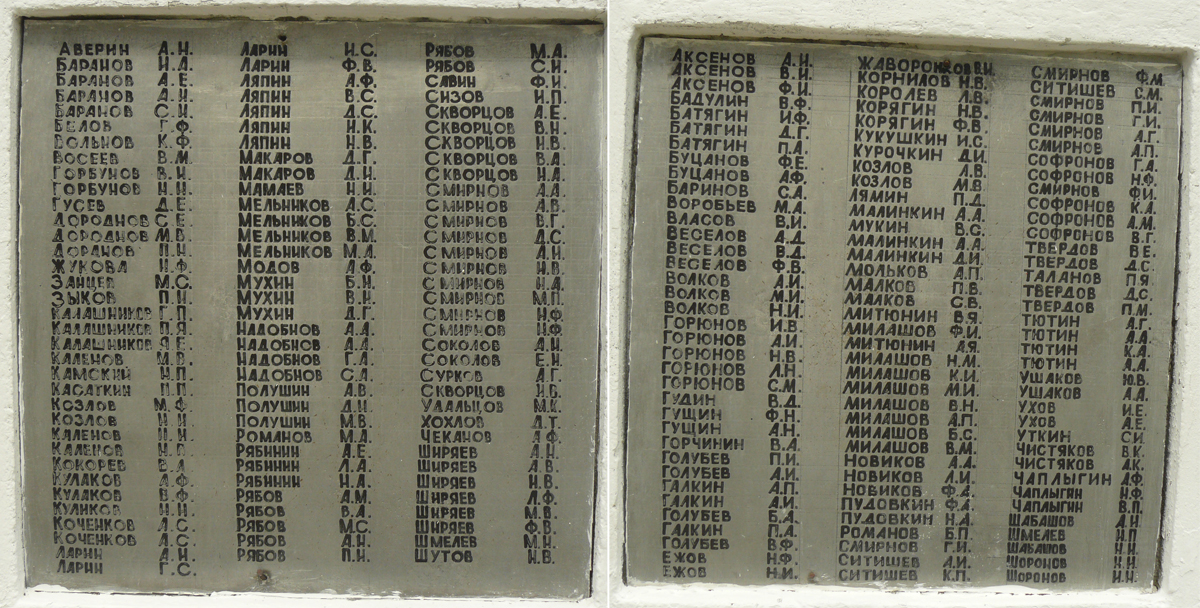 АВЕРИН А.Н.
БАРАНОВ И.А.
БАРАНОВ А.Е.
БАРАНОВ А.И.
БАРАНОВ С.И.
БЕЛОВ Г.Ф.
ВОЛЬНОВ К.Ф.
ВОСЕЕВ В.М.
ГОРБУНОВ В.И.
ГОРБУНОВ Н.И.
ГУСЕВ Д.Е.
ДОРОДНОВ С.Е.
ДОРОДНОВ М.В.
ДОРАНОВ П.Н.
ЖУКОВА Н.Ф.
ЗАЙЦЕВ М.С.
ЗЫКОВ П.Н.
КАЛАШНИКОВ Г.П.
КАЛАШНИКОВ П.Я.
КАЛАШНИКОВ Я.Е.
КАЛЕНОВ М.В.
КАМСКИЙ Н.П.
КАСАТКИН П.П.
КОЗЛОВ М.Ф.
КОЗЛОВ Н.Н.
КАЛЕНОВ Н.Н.
КАЛЕНОВ
КОКОРЕВ В.А.
КУЛАКОВ А.Ф.
КУЛАКОВ В.Ф.
КУЛИКОВ Н.Н.
КОЧЕНКОВ А.С.
КОЧЕНКОВ А.С.
ЛАРИН А.Н.
ЛАРИН Г.С.
ЛАРИН И.С.
ЛАРИН Ф.В.
ЛЯПИН А.Ф.
ЛЯПИН В.С.
ЛЯПИН Д.С.
ЛЯПИН Н.К.
ЛЯПИН Н.В.
МАКАРОВ Д.Г.
МАКАРОВ Д.Н.
МАМАЕВ Н.Н.
МЕЛЬНИКОВ А.С.
МЕЛЬНИКОВ Б.С.
МЕЛЬНИКОВ В.М.
МЕЛЬНИКОВ М.А.
МОДОВ А.Ф.
МУХИН Б.Н.
МУХИН В.Н.
МУХИН Д.Г.
НАДОБНОВ А.А.
НАДОБНОВ А.А.
НАДОБНОВ Г.А.
НАДОБНОВ С.А.
ПОЛУШИН А.В.
ПОЛУШИН Д.И.
ПОЛУШИН М.В.
РОМАНОВ М.А.
РЯБИНИН А.Е.
РЯБИНИН Л.А.
РЯБИНИН Н.А.
РЯБОВ А.М.
РЯБОВ В.А.
РЯБОВ М.С.
РЯБОВ А.Н.
РЯБОВ П.Н.
РЯБОВ М.А.
РЯБОВ С.Н.
САВИН Ф.И.
СИЗОВ И.П.
СКВОРЦОВ А.Е.
СКВОРЦОВ В.Н.
СКВОРЦОВ Н.В.
СКВОРЦОВ В.А.
СКВОРЦОВ Н.А.
СМИРНОВ А.А.
СМИРНОВ А.В.
СМИРНОВ В.Г.
СМИРНОВ Д.С.
СМИРНОВ А.Н.
СМИРНОВ Н.В.
СМИРНОВ Н.А.
СМИРНОВ М.П.
СМИРНОВ Н.Ф.
СМИРНОВ Н.Ф.
СОКОЛОВ А.Н.
СОКОЛОВ Е.Н.
СУРКОВ А.Г.
СКВОРЦОВ Н.В.
УДАЛЬЦОВ М.К.
ХОХЛОВ Д.Т.
ЧЕКАНОВ А.Ф.
ШИРЯЕВ А.Н.
ШИРЯЕВ А.В.
ШИРЯЕВ Н.В.
ШИРЯЕВ Л.Ф.
ШИРЯЕВ М.В.
ШИРЯЕВ Ф.В.
ШМЕЛЕВ М.Н.
ШУТОВ Н.В.
АКСЕНОВ А.И.
АКСЕНОВ В.И.
АКСЕНОВ Ф.И.
БАДУЛИН В.Ф.
БАТЯГИН И.Ф.
БАТЯГИН Д.Г.
БАТЯГИН П.А.
БУЦАНОВ Ф.Е.
БУЦАНОВ А.Ф.
БАРИНОВ С.А.
ВОРОБЬЕВ М.А.
ВЛАСОВ В.И.
ВЕСЕЛОВ А.Д.
ВЕСЕЛОВ В.Д.
ВЕСЕЛОВ Ф.В.
ВОЛКОВ А.И.
ВОЛКОВ М.И.
ВОЛКОВ Н.И.
ГОРЮНОВ И.В.
ГОРЮНОВ А.И.
ГОРЮНОВ Н.В.
ГОРЮНОВ Л.Н.
ГОРЮНОВ С.М.
ГУДИН В.Д.
ГУЩИН Ф.Н.
ГУЩИН А.Н.
ГОРЧИНИН В.А.
ГОЛУБЕВ П.И.
ГОЛУБЕВ А.И.
ГАЛКИН А.П.
ГАЛКИН А.И.
ГОЛУБЕВ Б.А.
ГАЛКИН П.А.
ГОЛУБЕВ В.Ф.
ЕЖОВ Н.Ф.
ЕЖОВ Н.И.
ЖАВОРОНКОВ В.И.
КОРНИЛОВ Н.В.
КОРОЛЕВ Л.В.
КОРЯГИН Н.В.
КОРЯГИН Ф.В.
КУКУШКИН И.С.
КУРОЧКИН Д.И.
КОЗЛОВ А.В.
КОЗЛОВ М.В.
ЛЯМИН П.Д.
МАЛИНКИН А.А.
МУКИН В.С.
МАЛИНКИН А.А.
МАЛИНКИН Д.И.
МОЛЬКОВ А.П.
МАЛКОВ П.В.
МАЛКОВ С.В.
МИТЮНИН В.Я.
МИЛАШОВ Ф.И.
МИТЮНИН А.Я.
МИЛАШОВ Н.М.
МИЛАШОВ К.И.
МИЛАШОВ М.И.
МИЛАШОВ В.Н.
МИЛАШОВ А.П.
МИЛАШОВ Б.С.
МИЛАШОВ В.М.
НОВИКОВ А.А.
НОВИКОВ А.И.
НОВИКОВ Ф.А.
ПУДОВКИН Ф.А.
ПУДОВКИН Н.А.
РОМАНОВ Б.П.
СМИРНОВ Г.И.
СИТИШЕВ А.И.
СИТИШЕВ К.П.
СМИРНОВ Ф.М.
СИТИШЕВ С.М.
СМИРНОВ П.И.
СМИРНОВ Г.И.
СМИРНОВ А.Г.
СМИРНОВ А.П.
СОФРОНОВ Г.А.
СОФРОНОВ Н.Ф.
СМИРНОВ Ф.И.
СОФРОНОВ К.А.
СОФРОНОВ А.М.
СОФРОНОВ В.Г.
ТВЕРДОВ В.Е.
ТВЕРДОВ Д.С.
ТАЛАНОВ П.Я.
ТВЕРДОВ Д.С.
ТВЕРДОВ П.М.
ТЮТИН А.Г.
ТЮТИН А.А.
ТЮТИН К.А.
ТЮТИН А.А.
УШАКОВ Ю.В.
УШАКОВ А.А.
УХОВ И.Е.
УХОВ А.Е.
УТКИН С.И.
ЧИСТЯКОВ В.К.
ЧИСТЯКОВ А.К.
ЧАПЛЫГИН А.Ф.
ЧАПЛЫГИН Н.Ф.
ЧАПЛЫГИН В.П.
ШАБАШОВ А.Н.
ШМЕЛЕВ И.П.
ШАБАШОВ Н.Н.
ШОРОНОВ Н.Н.
ШОРОНОВ Н.Н.